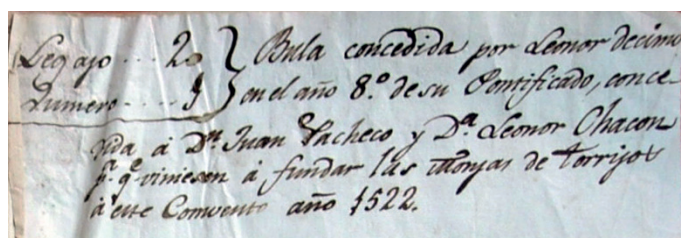 Legajo ... 20 } Bula concedida por Leonor decimo
Numero .... 9 } en el año 8.º de su Pontificado, conce-
dida á D.n Juan Pacheco y D.ª Leonor Chacon
p.ª q.e viniesen á fundar las Monjas de Torrijos
á este Convento año 1522.